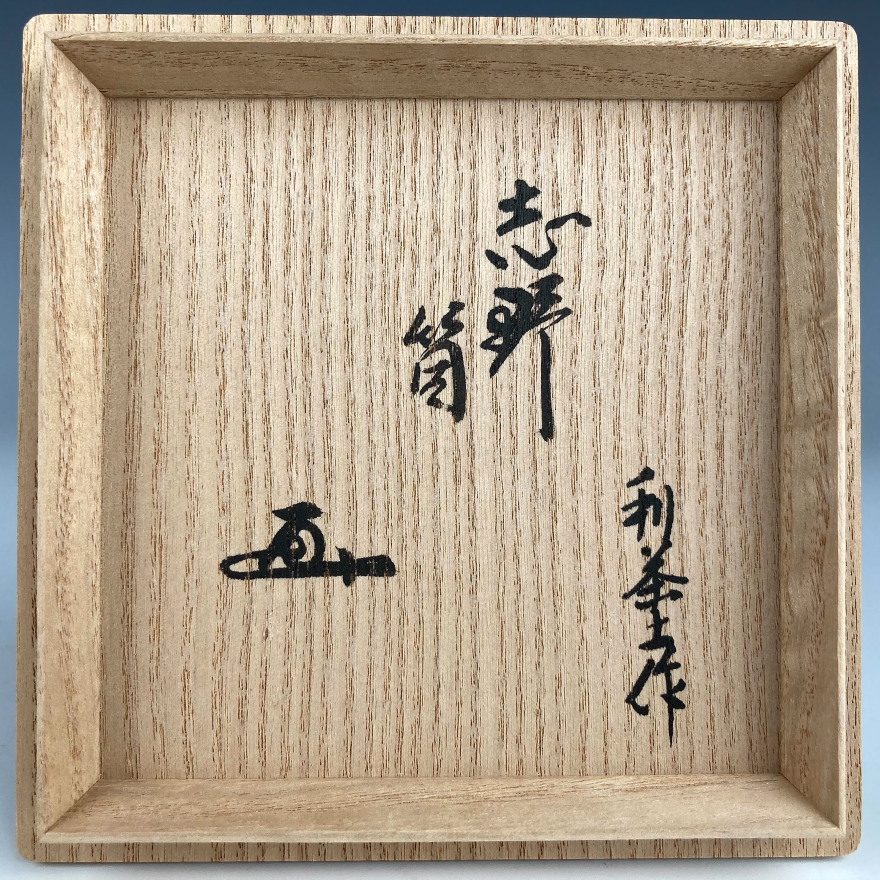 志野
筒
利茶土作